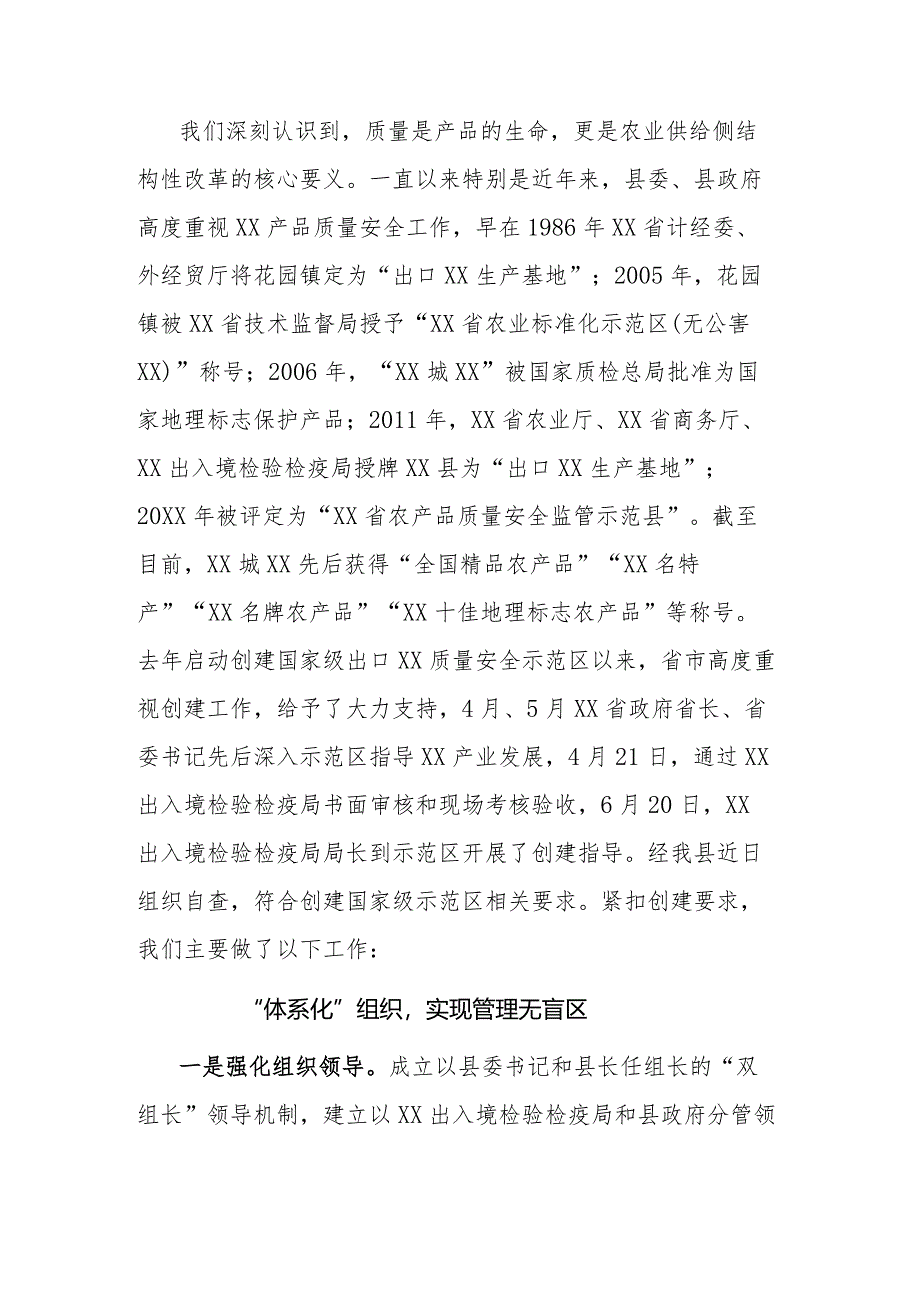 我们深刻认识到，质量是产品的生命，更是农业供给侧结
构性改革的核心要义。一直以来特别是近年来，县委、县政府
高度重视XX产品质量安全工作，早在1986年XX省计经委、
外经贸厅将花园镇定为“出口XX生产基地”；2005年，花园
镇被XX省技术监督局授予“XX省农业标准化示范区(无公害
XX)”称号；2006年，“XX城XX”被国家质检总局批准为国
家地理标志保护产品；2011年，XX省农业厅、XX省商务厅、
XX出入境检验检疫局授牌XX县为“出口XX生产基地”；
20XX年被评定为“XX省农产品质量安全监管示范县”。截至
目前，XX城XX先后获得“全国精品农产品”“XX名特
产”“XX名牌农产品”“XX十佳地理标志农产品”等称号。
去年启动创建国家级出口XX质量安全示范区以来，省市高度重
视创建工作，给予了大力支持，4月、5月XX省政府省长、省
委书记先后深入示范区指导XX产业发展，4月21日，通过XX
出入境检验检疫局书面审核和现场考核验收，6月20日，XX
出入境检验检疫局局长到示范区开展了创建指导。经我县近日
组织自查，符合创建国家级示范区相关要求。紧扣创建要求，
我们主要做了以下工作：
“体系化”组织，实现管理无盲区
一是强化组织领导。成立以县委书记和县长任组长的“双
组长”领导机制，建立以XX出入境检验检疫局和县政府分管领